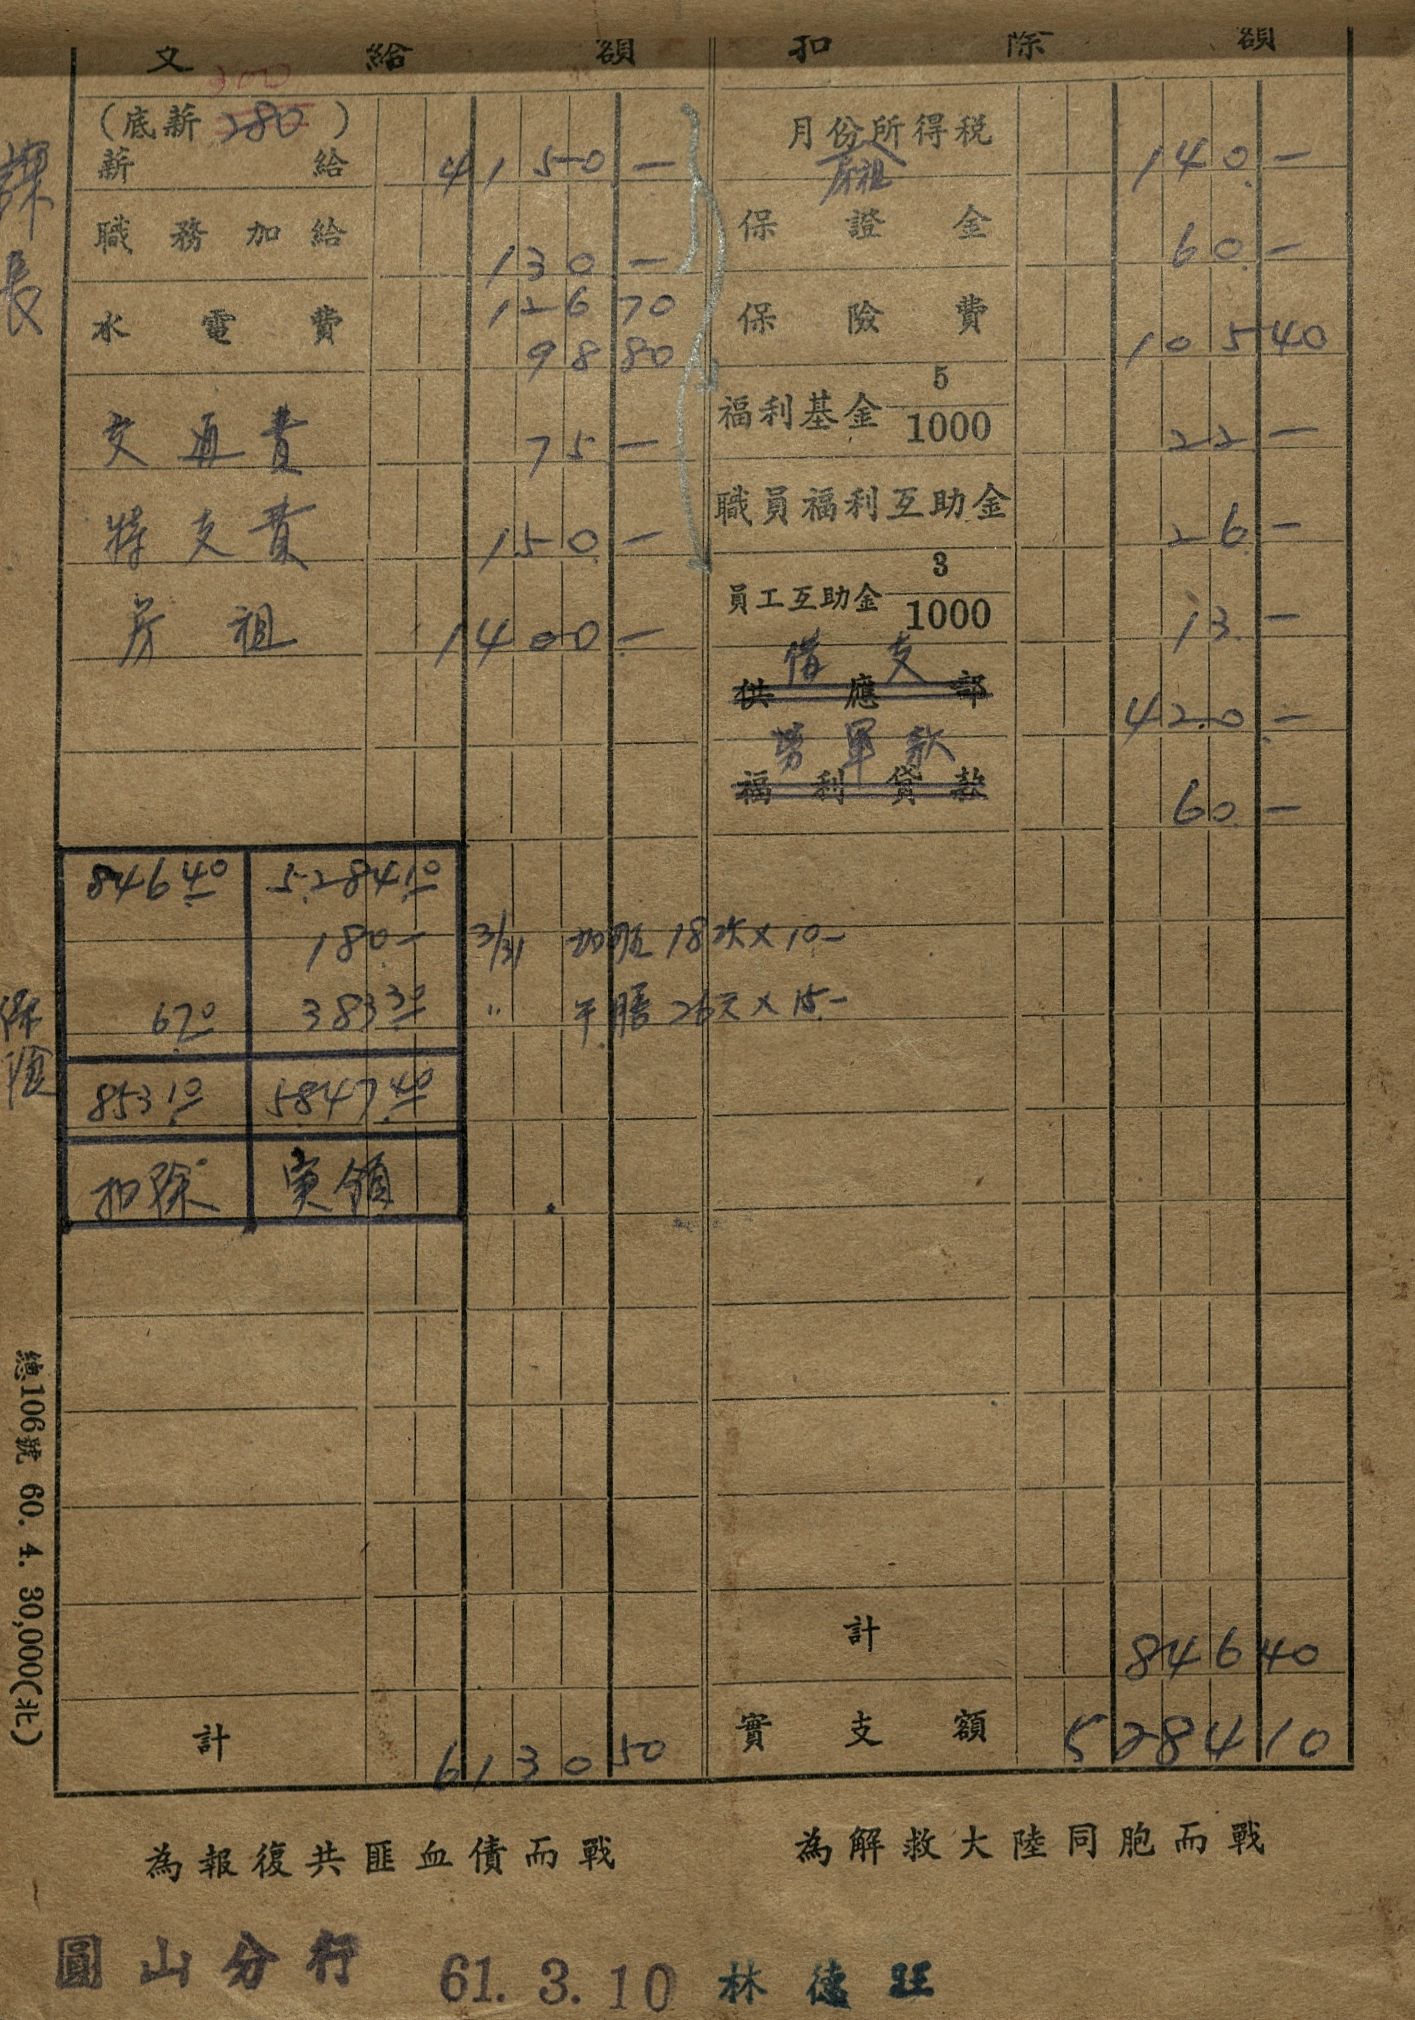 支給額 扣除額
300
（底薪 280）
薪給 4150—
職務加給 130—
水電費 126 70
98 80
交通費 75—
特支費 150—
房租 1400—
課長
月份所得税 140—
房租
保證金 60—
保險費 105 40
福利基金 5/1000 22—
職員福利互助金 26—
員工互助金 3/1000 13—
借支
供應部 420—
勞軍款
福利貸款 60—
846 40 5284 10
180— 3/31 加班 18次×10—
6 70 383 30 〃 午膳 26天×15—
保險
853 10 5847 40
扣除 実領
計 846 40
計 6130 50
實支額 5284 10
總106號 60. 4. 30,000(北)
為報復共匪血債而戰 為解救大陸同胞而戰
圓山分行 61. 3. 10 林德旺